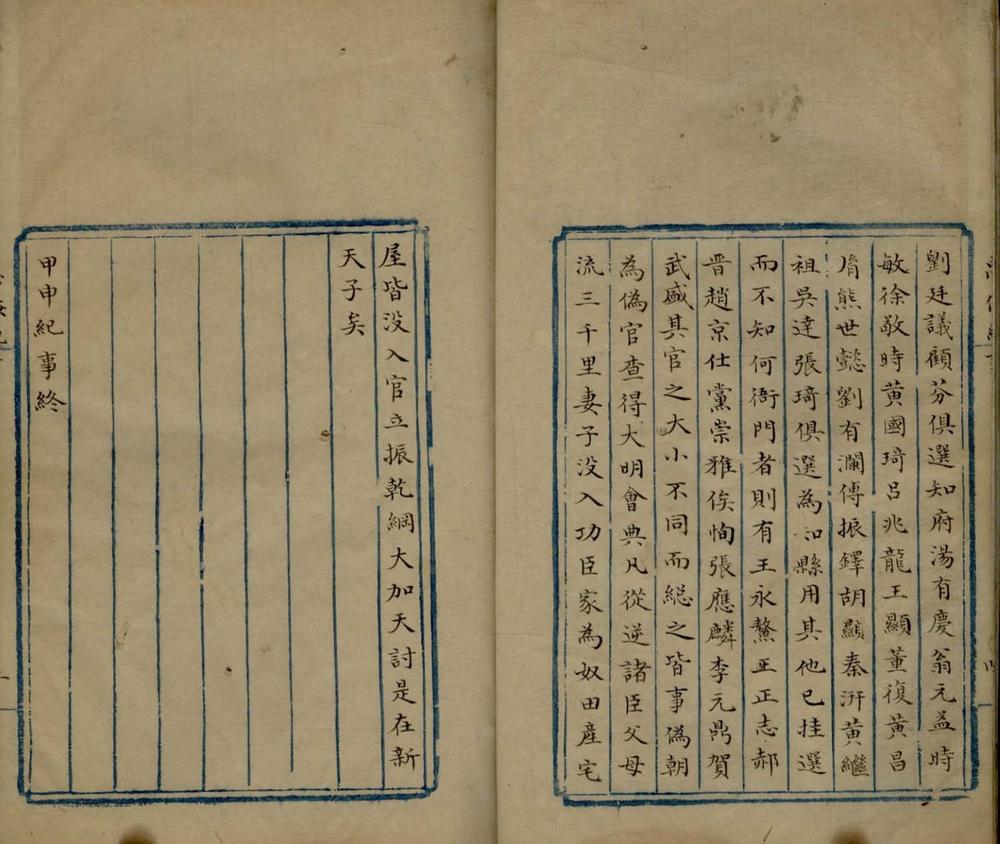 劉廷議顧芬俱選知府湯有慶翁元益時
敏徐敬時黃國琦吕兆龍王顯董復黃昌
胥熊世懿劉有瀾傅振鐸胡顯秦汧黃繼
祖吳達張琦俱選為知縣用其他已挂選
而不知何衙門者則有王永鰲王正志郝
晋趙京仕黨崇雅侯恂張應麟李元鼎賀
武盛其官之大小不同而縂之皆事偽朝
為偽官查得大明會典凡從逆諸臣父母
流三千里妻子没入功臣家為奴田產宅
屋皆没入官立振乾綱大加天討是在新
天子矣
甲申紀事終